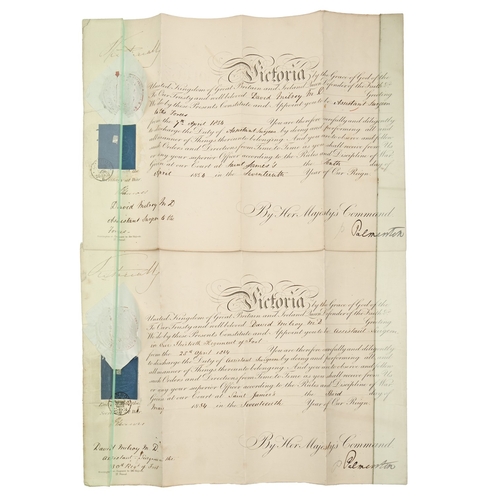 Victoria by the Grace of God of the
United Kingdom of Great Britain and Ireland Queen Defender of the Faith &c
To Our Trusty and well beloved David Milroy M.D. Greeting
We do by these Presents Constitute and Appoint you to be Assistant Surgeon
to the Forces
from the 7th April 1854 You are therefore carefully and diligently
to discharge the Duty of Assistant Surgeon by doing and performing all and
Manner of Things thereunto belonging And you are to observe and follow
such Orders and Directions from Time to Time as you shall receive from Us
or any your superior Officer according to the Rules and Discipline of War
Given at our Court at Saint James's the day of
April 1854 in the Seventeenth Year of Our Reign
By Her Majesty's Command
Palmerston
David Milroy M D
Assistant Surgeon to the
Forces
Victoria by the Grace of God of the
United Kingdom of Great Britain and Ireland Queen Defender of the Faith &c
To Our Trusty and well beloved David Milroy M.D. Greeting
We do by these Presents Constitute and Appoint you to be Assistant Surgeon
in Our Thirtieth Regiment of Foot
from the 28th April 1854 You are therefore carefully and diligently
to discharge the Duty of Assistant Surgeon by doing and performing all and
Manner of Things thereunto belonging And you are to observe and follow
such Orders and Directions from Time to Time as you shall receive from Us
or any your superior Officer according to the Rules and Discipline of War
Given at our Court at Saint James's the Third day of
May 1854 in the Seventeenth Year of Our Reign
By Her Majesty's Command
Palmerston
David Milroy M D
Assistant Surgeon
30th Regt of Foot